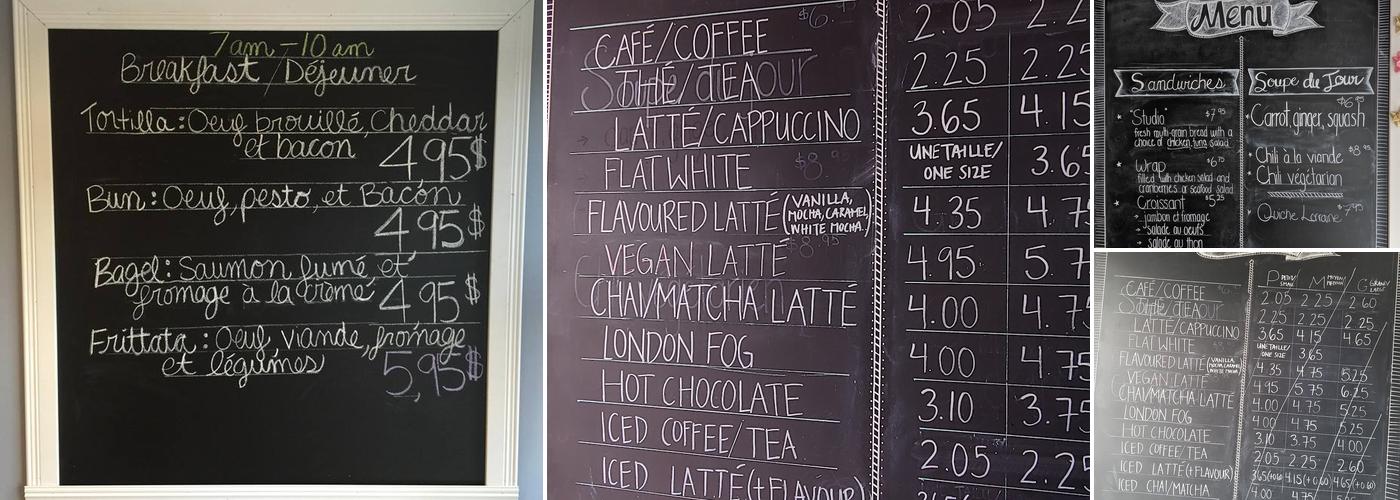 7am - 10 am
Breakfast / Déjeuner
Tortilla: Oeuf brouillé, Cheddar
et bacon 4.95$
Bun: Oeuf, pesto, et Bacon
4.95$
Bagel: Saumon fumé et
fromage à la crème 4.95$
Frittata: Oeuf, viande, fromage
et légumes 5,95$
CAFÉ/COFFEE 2.05 2.2
THÉ/TEA 2.25 2.25
LATTÉ/CAPPUCCINO 3.65 4.15
FLAT WHITE UNE TAILLE/ 3.65
ONE SIZE
FLAVOURED LATTÉ (VANILLA, 4.35 4.7
MOCHA, CARAMEL,
WHITE MOCHA.)
VEGAN LATTÉ 4.95 5.7
CHAI/MATCHA LATTÉ 4.00 4.7
LONDON FOG 4.00 4.75
HOT CHOCOLATE 3.10 3.75
ICED COFFEE/TEA 2.05 2.2
ICED LATTÉ (+FLAVOUR)
Menu
Sandwiches
"Studio" $7.95
fresh multi-grain bread with a
choice of chicken, tuna, salad
Wrap $6.75
filled with chicken salad and
cranberries or seafood salad
Croissant $5.25
→ jambon et fromage
→ salade au oeufs
→ salade au thon
Soupe du Jour
$6.95
Carrot, ginger, squash
Chili à la viande $8.95
Chili végétarian
Quiche Lorraine $7.95
PETIT/SMALL MOYEN/MEDIUM GRAND/LARGE
CAFÉ/COFFEE 2.05 2.25 2.60
THÉ/TEA 2.25 2.25 2.25
LATTÉ/CAPPUCCINO 3.65 4.15 4.65
FLAT WHITE UNE TAILLE/ 3.65
ONE SIZE
FLAVOURED LATTÉ (VANILLA, 4.35 4.75 5.25
MOCHA, CARAMEL,
WHITE MOCHA.)
VEGAN LATTÉ 4.95 5.75 6.25
CHAI/MATCHA LATTÉ 4.00 4.75 5.25
LONDON FOG 4.00 4.75 5.25
HOT CHOCOLATE 3.10 3.75 4.00
ICED COFFEE/TEA 2.05 2.25 2.60
ICED LATTÉ (+FLAVOUR) 3.65 (+0.60) 4.15 (+0.60) 4.65 (+0.60)
ICED CHAI/MATCHA 4.00 4.75